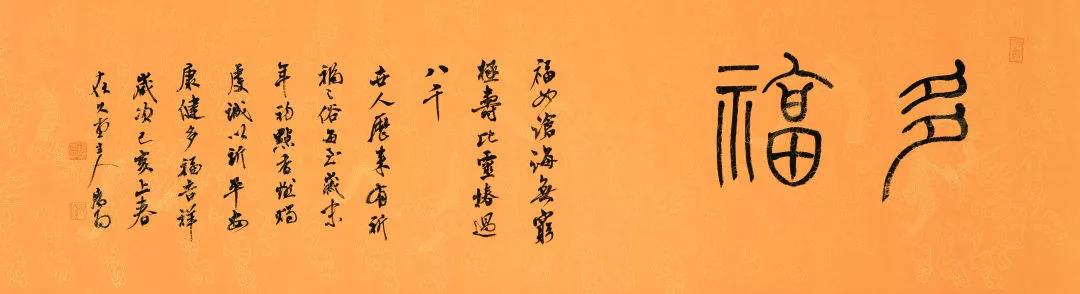 多福
福如滄海無窮
極壽比靈椿過
八千
世人歷來有祈
福之俗每至歲末
年初點香燃燭
虔誠以祈平安
康健多福吉祥
歲次己亥上春
主人